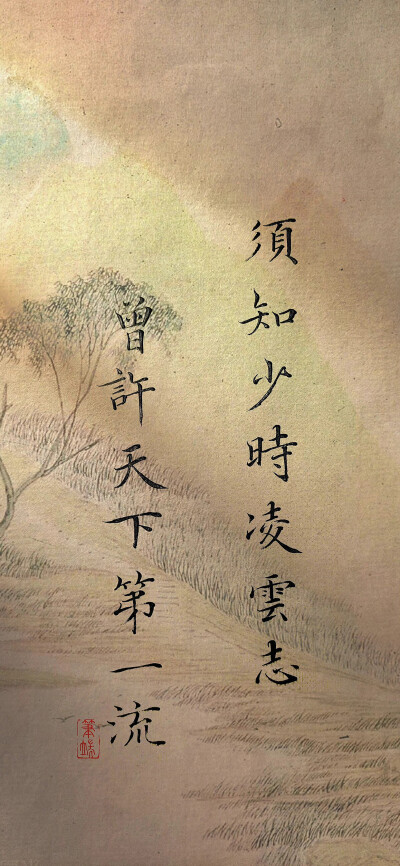 須知少時凌雲志
曾許天下第一流